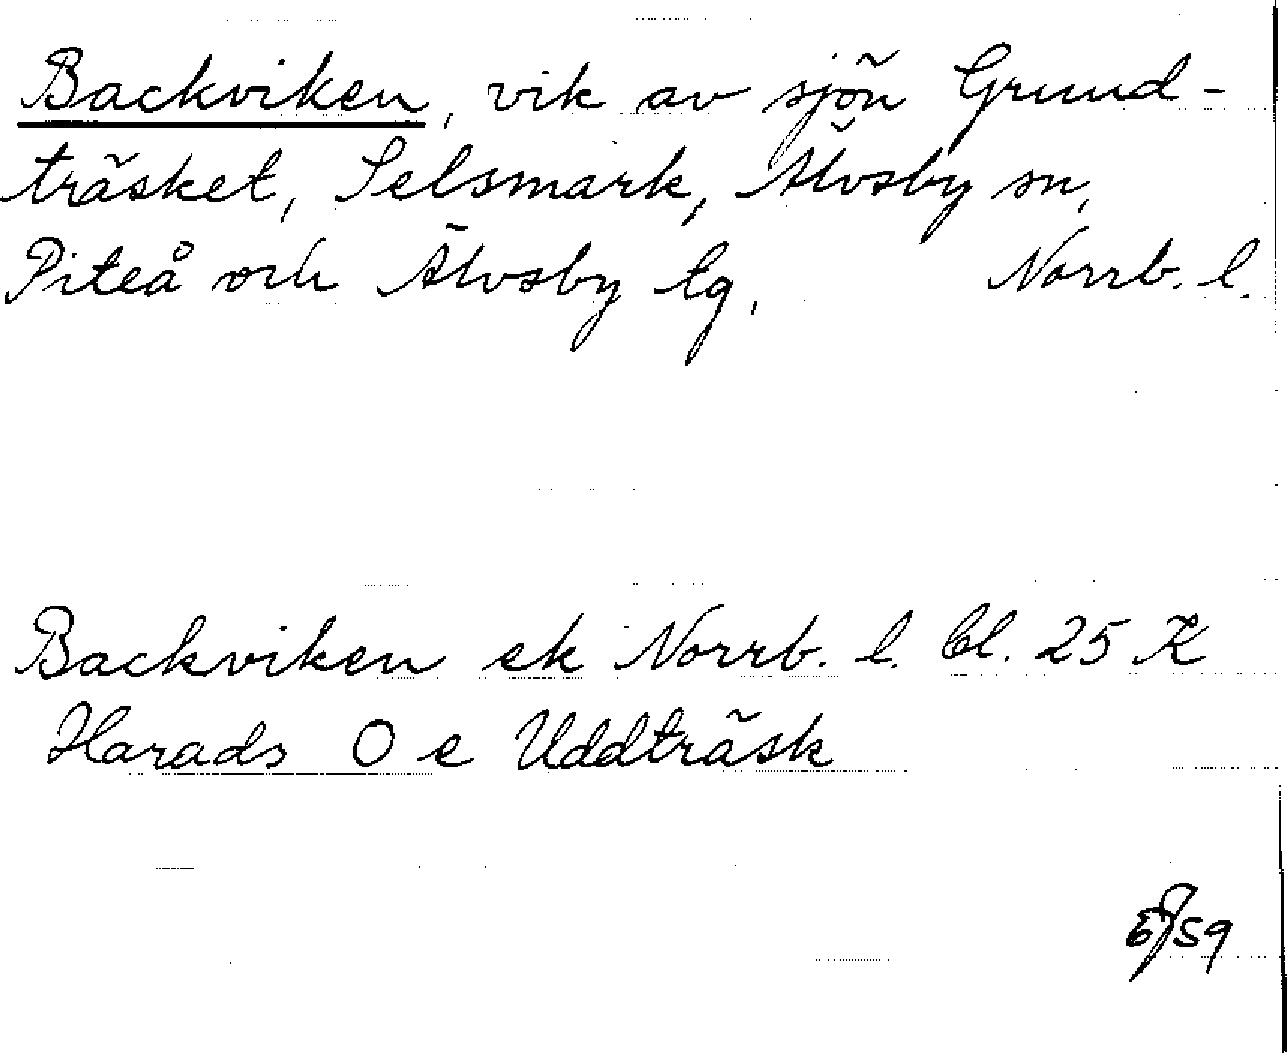 Backviken, vik av sjön Grund-
träsket, Selsmark, Älvsby sn,
Piteå och Älvsby lg, Norrb. l.
Backviken ek Norrb. l. bl. 25 K
Harads O e Uddträsk